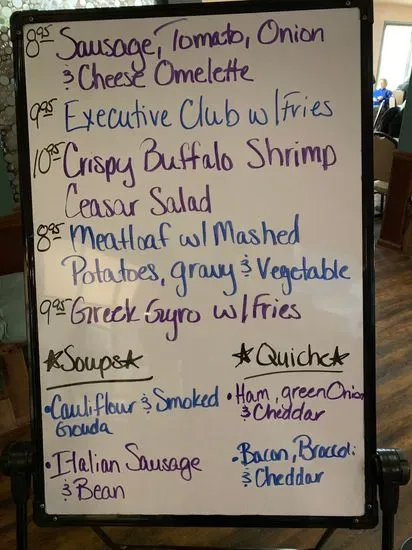 8.95 Sausage, Tomato, Onion
& Cheese Omelette
9.95 Executive Club w/Fries
10.95 Crispy Buffalo Shrimp
Ceasar Salad
8.95 Meatloaf w/ Mashed
Potatoes, gravy & Vegetable
9.95 Greek Gyro w/Fries
*Soups*
•Cauliflour & Smoked
Gouda
•Italian Sausage
& Bean
*Quiche*
•Ham, green Onion
& Cheddar
•Bacon, Broccoli
& Cheddar